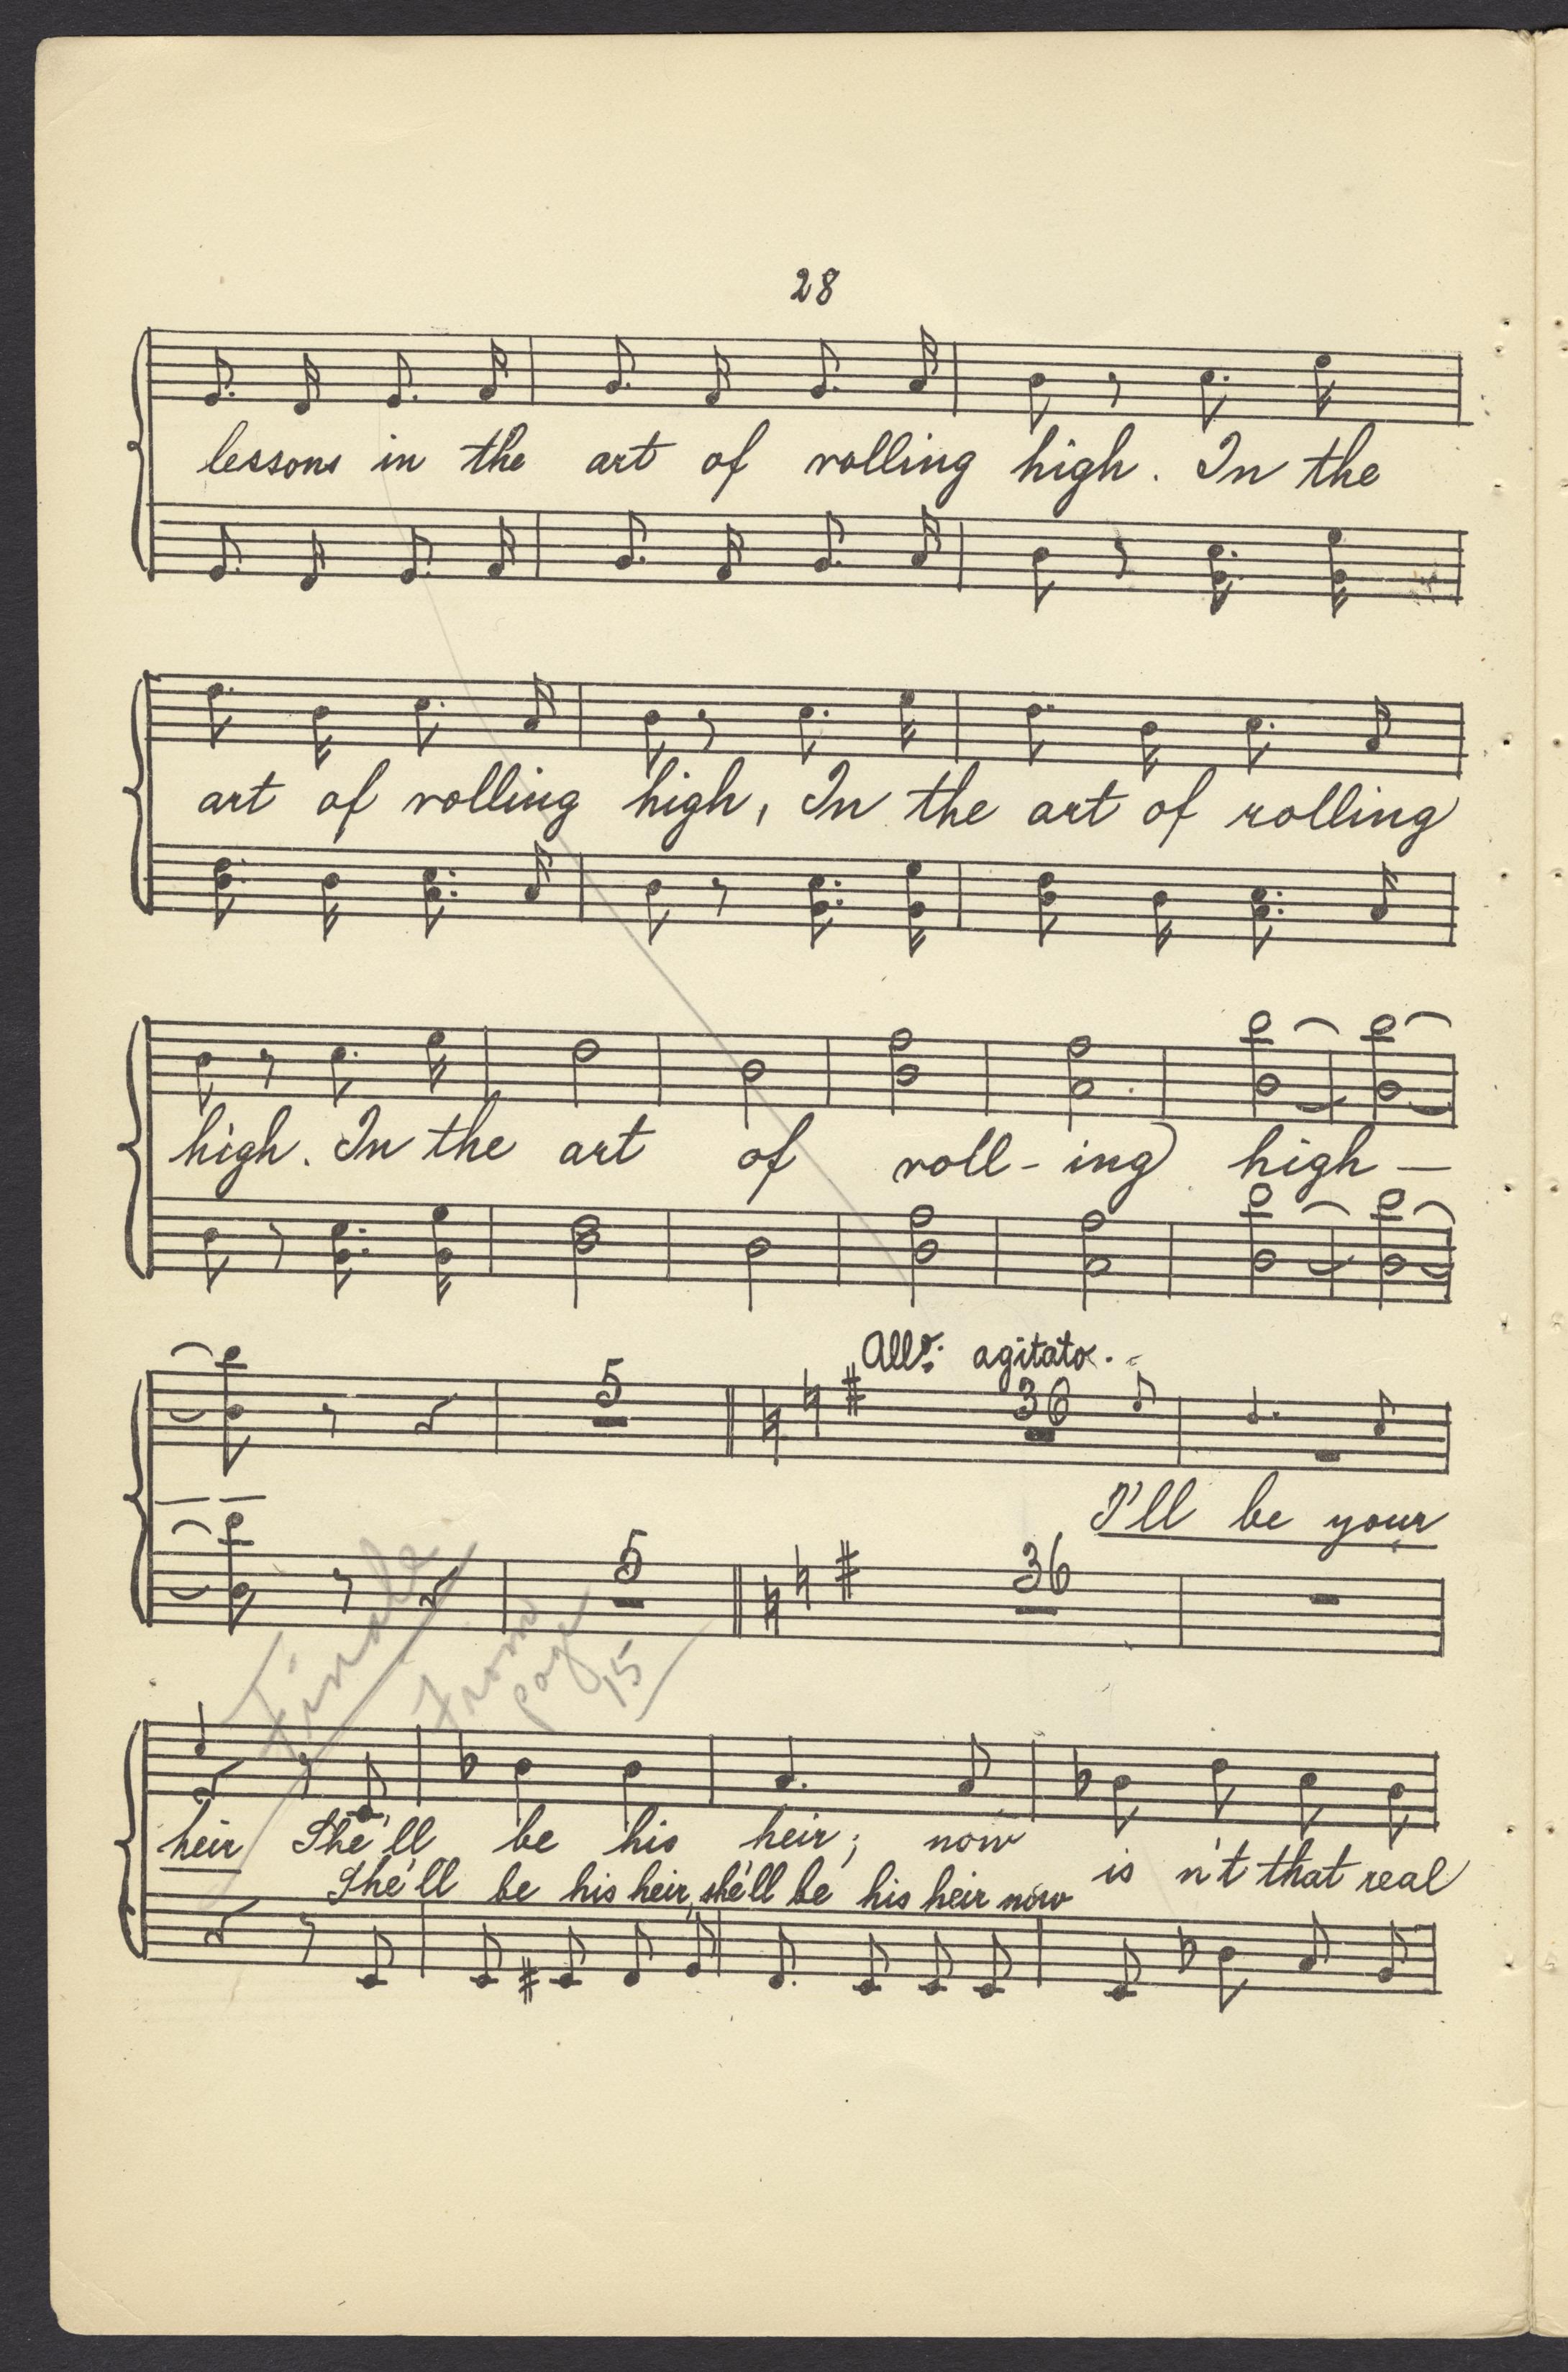 28
lessons in the art of rolling high. In the
art of rolling high, In the art of rolling
high. In the art of roll-ing high —
All⁰. agitato.
5 36
I'll be your
5 36
Finale.
from
page
15
heir She'll be his heir; now is n't that real
She'll be his heir, she'll be his heir now